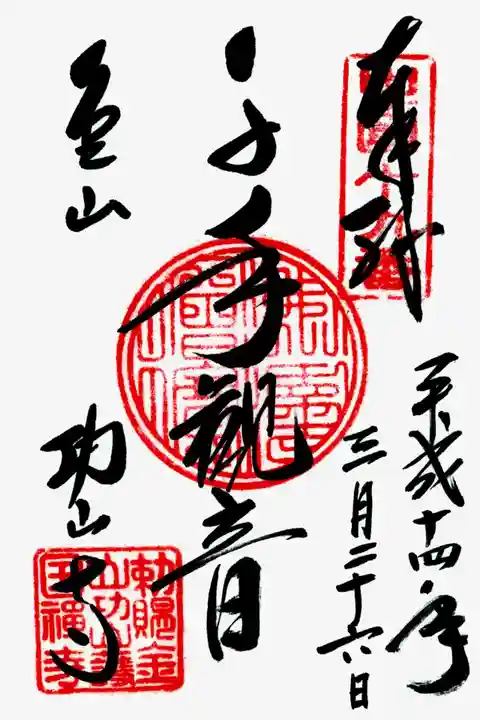 奉拝
平成十四年
三月二十六日
千手観音
金山
功山寺
勅賜金
山功山護
国禅寺
佛法僧寳